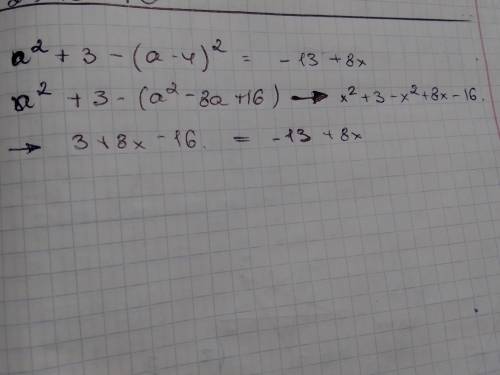 a² + 3 - (a - 4)² = -13 + 8x
a² + 3 - (a² - 8a + 16) → x² + 3 - x² + 8x - 16.
→ 3 + 8x - 16. = -13 + 8x